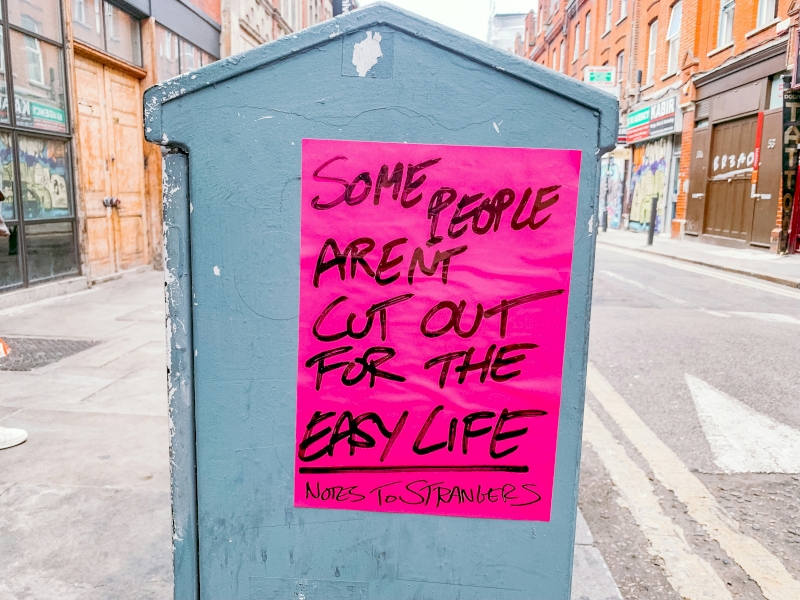 SOME PEOPLE
ARENT
CUT OUT
FOR THE
EASY LIFE
NOTES TO STRANGERS
KABIR
TATTOO